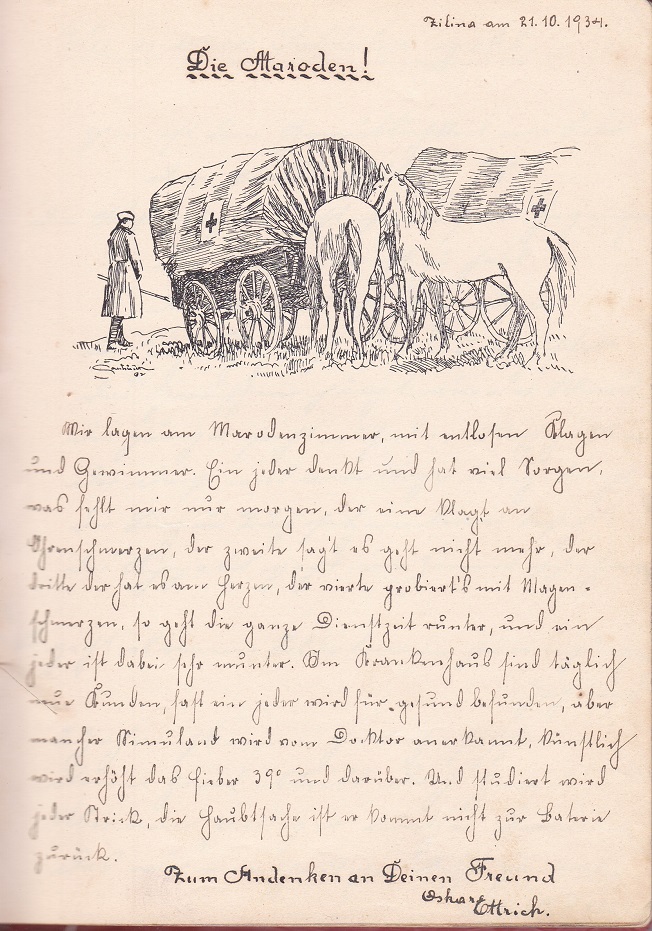 Zilina am 21.10.1934.
Die Maroden!
Wir lagen am Marodenzimmer, mit entlosen Klagen
und Gewimmer. Ein jeder denkt und hat viel Sorgen,
was fehlt mir nur morgen, der eine klagt an
Ohrenschmerzen, der zweite sagt es geht nicht mehr, der
dritte der hat es am Herzen, der vierte probiert's mit Magen-
schmerzen, so geht die ganze Dienstzeit runter, und ein
jeder ist dabei sehr munter. Im Krankenhaus sind täglich
neue Kunden, fast ein jeder wird für gesund befunden, aber
mancher Simuland wird vom Docktor anerkannt, künstlich
wird erhöht das Fieber 39° und darüber. Und studiert wird
jeder Strick, die Haubtsache ist er kommt nicht zur Baterie
zurück.
Zum Andenken an Deinen Freund
Oskar
Ettrich.